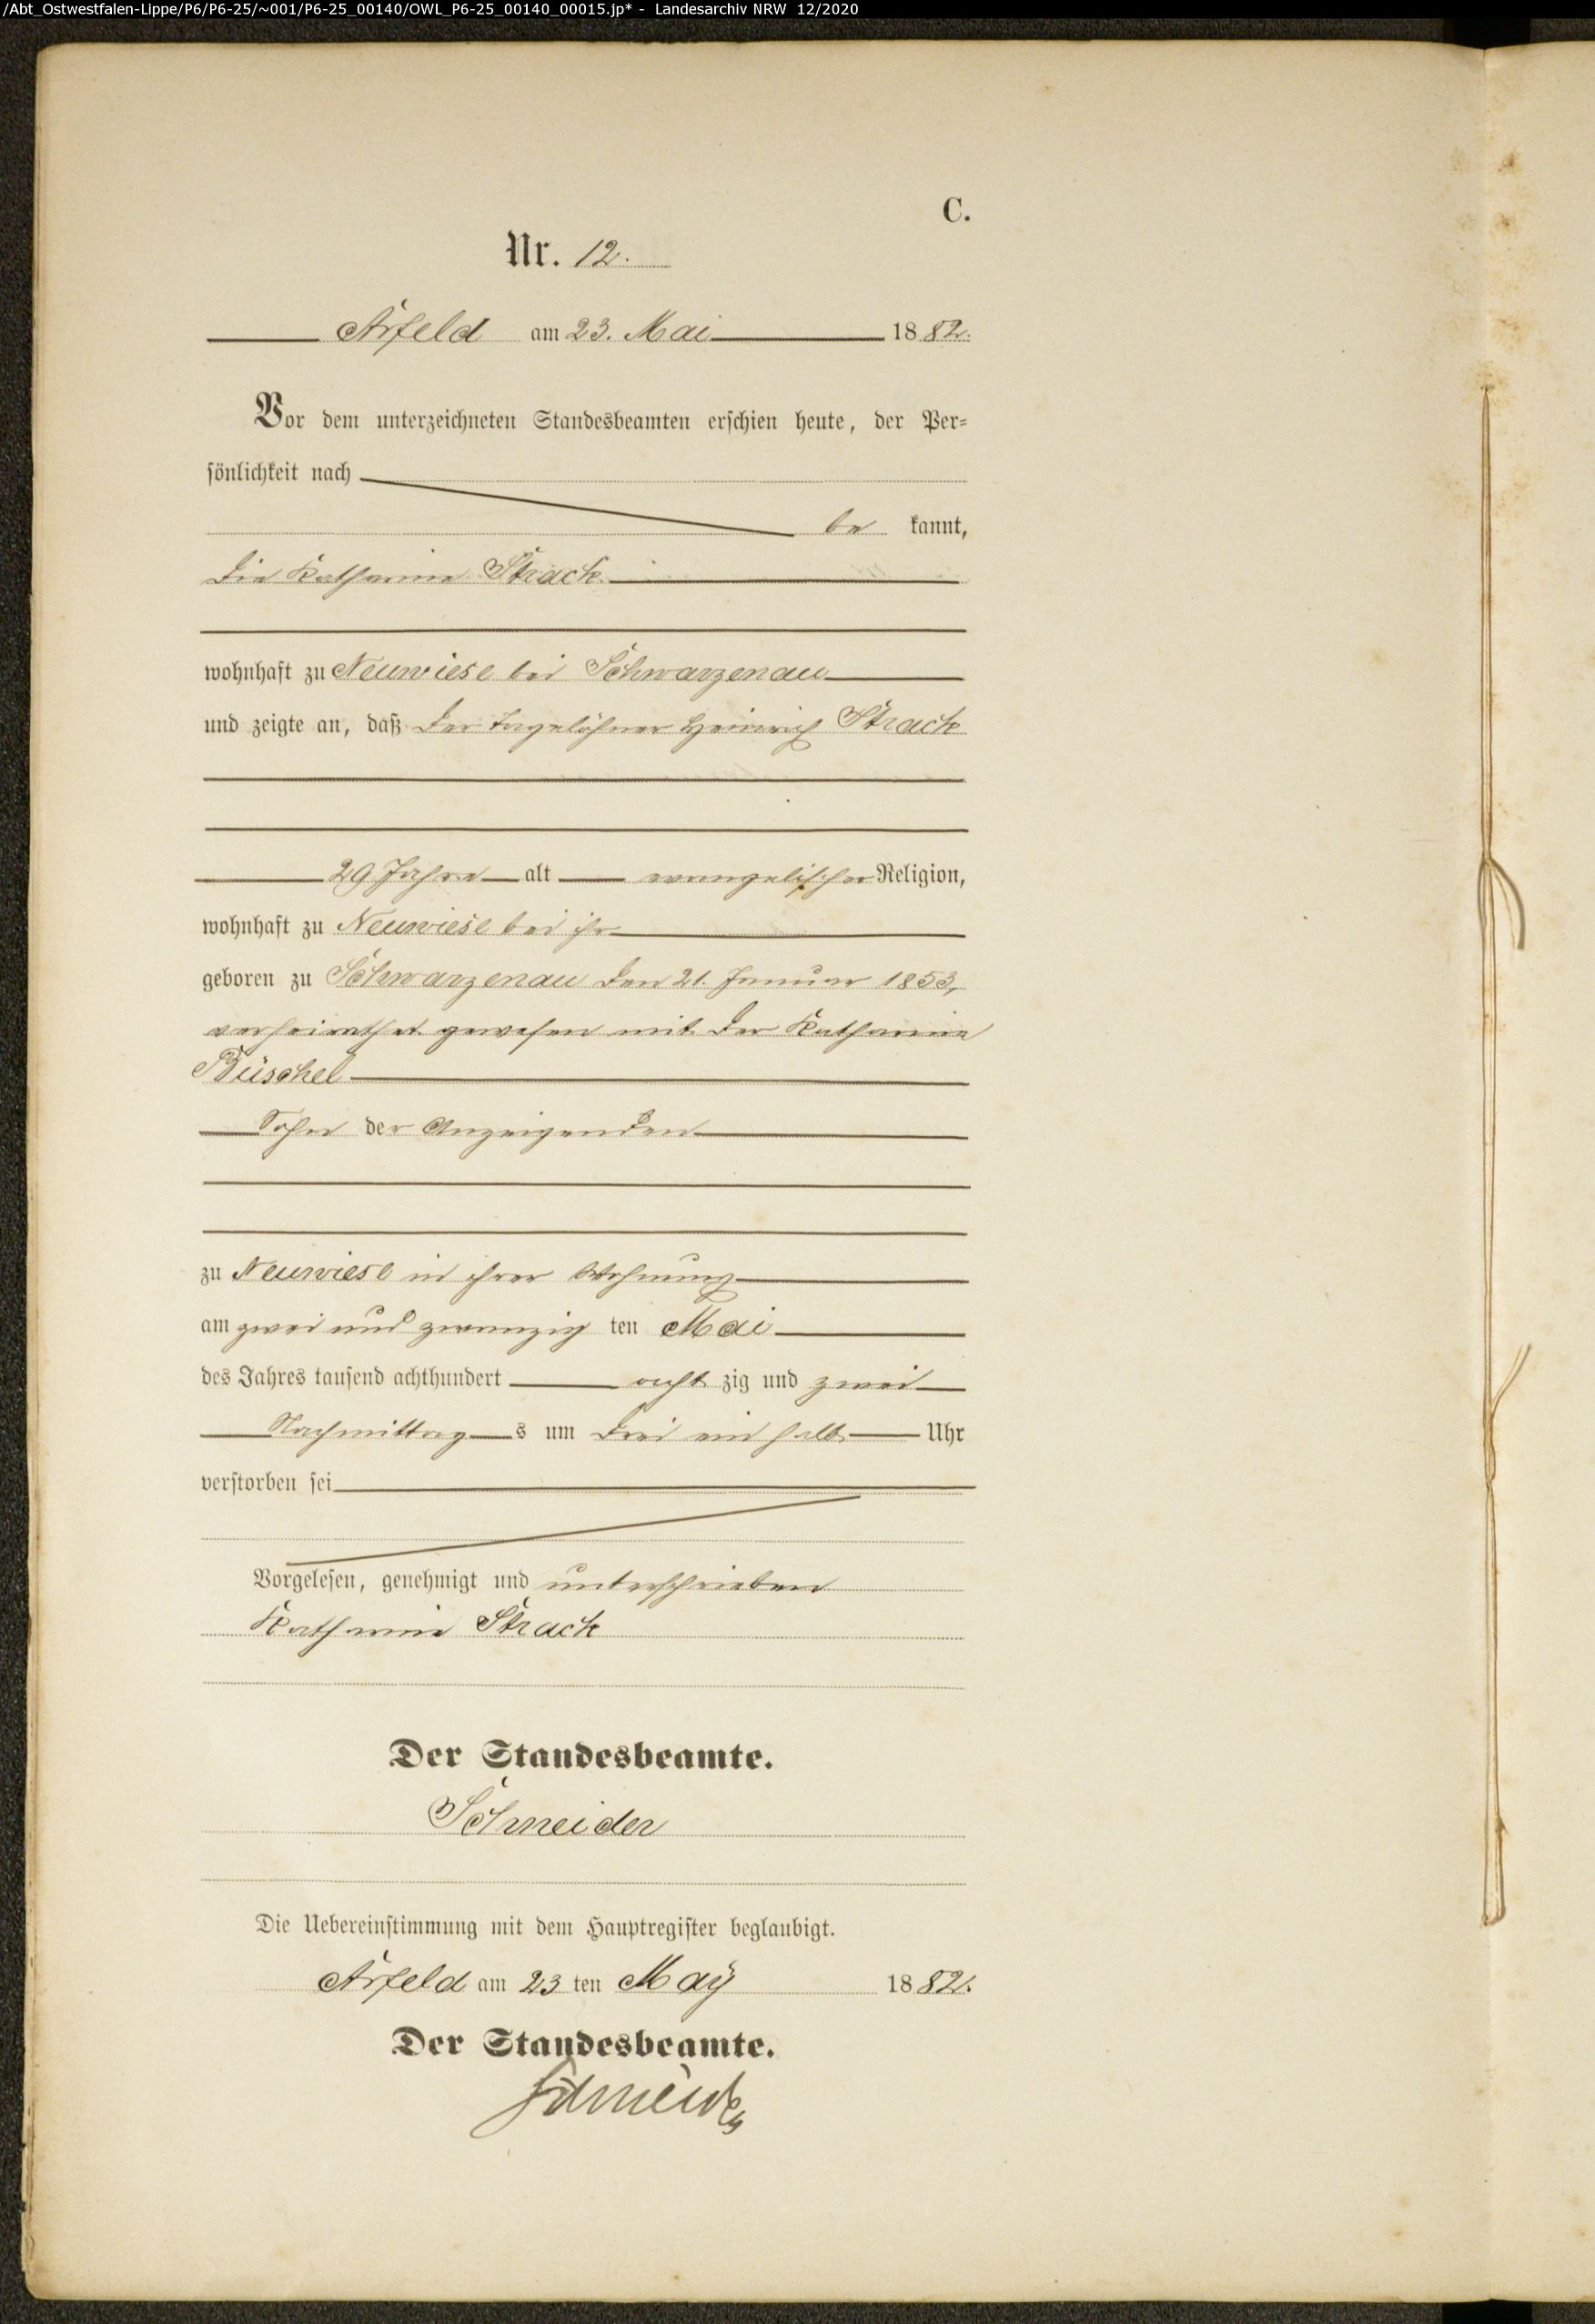 /Abt_Ostwestfalen-Lippe/P6/P6-25/~001/P6-25_00140/OWL_P6-25_00140_00015.jp* - Landesarchiv NRW 12/2020
C.
Nr. 12.
Arfeld am 23. Mai 1882.
Vor dem unterzeichneten Standesbeamten erschien heute, der Per-
sönlichkeit nach
be kannt,
die Katharina Strack
wohnhaft zu Neuwiese bei Schwarzenau
und zeigte an, daß der Tagelöhner Heinrich Strack
29 Jahre alt evangelischer Religion,
wohnhaft zu Neuwiese bei ihr
geboren zu Schwarzenau den 21. Januar 1853,
verheirathet gewesen mit der Katharine
Büschel
Sohn der Anzeigenden
zu Neuwiese in ihrer Wohnung
am zwei und zwanzig ten Mai
des Jahres tausend achthundert acht zig und zwei
Nachmittag s um drei ein halb Uhr
verstorben sei
Vorgelesen, genehmigt und unterschrieben
Katharine Strack
Der Standesbeamte.
Schneider
Die Uebereinstimmung mit dem Hauptregister beglaubigt.
Arfeld am 23 ten May 1882.
Der Standesbeamte.
Schneider